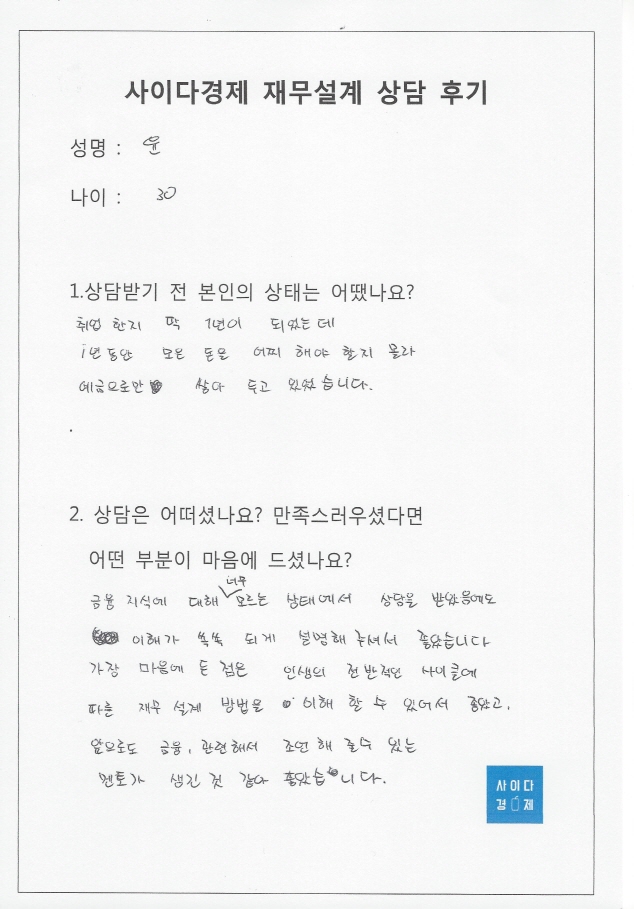 사이다경제 재무설계 상담 후기
성명 : 윤
나이 : 30
1.상담받기 전 본인의 상태는 어땠나요?
취업 한지 딱 1년이 되었는데
1년동안 모은 돈을 어찌 해야 할지 몰라
예금으로만 쌓아 두고 있었습니다.
2. 상담은 어떠셨나요? 만족스러우셨다면
어떤 부분이 마음에 드셨나요?
금융 지식에 대해 너무 모르는 상태에서 상담을 받았음에도
이해가 쏙쏙 되게 설명해 주셔서 좋았습니다
가장 마음에 든 점은 인생의 전반적인 사이클에
따른 재무 설계 방법을 이해 할 수 있어서 좋았고,
앞으로도 금융, 관련해서 조언 해 줄 수 있는
멘토가 생긴 것 같아 좋았습니다.
사이다
경제